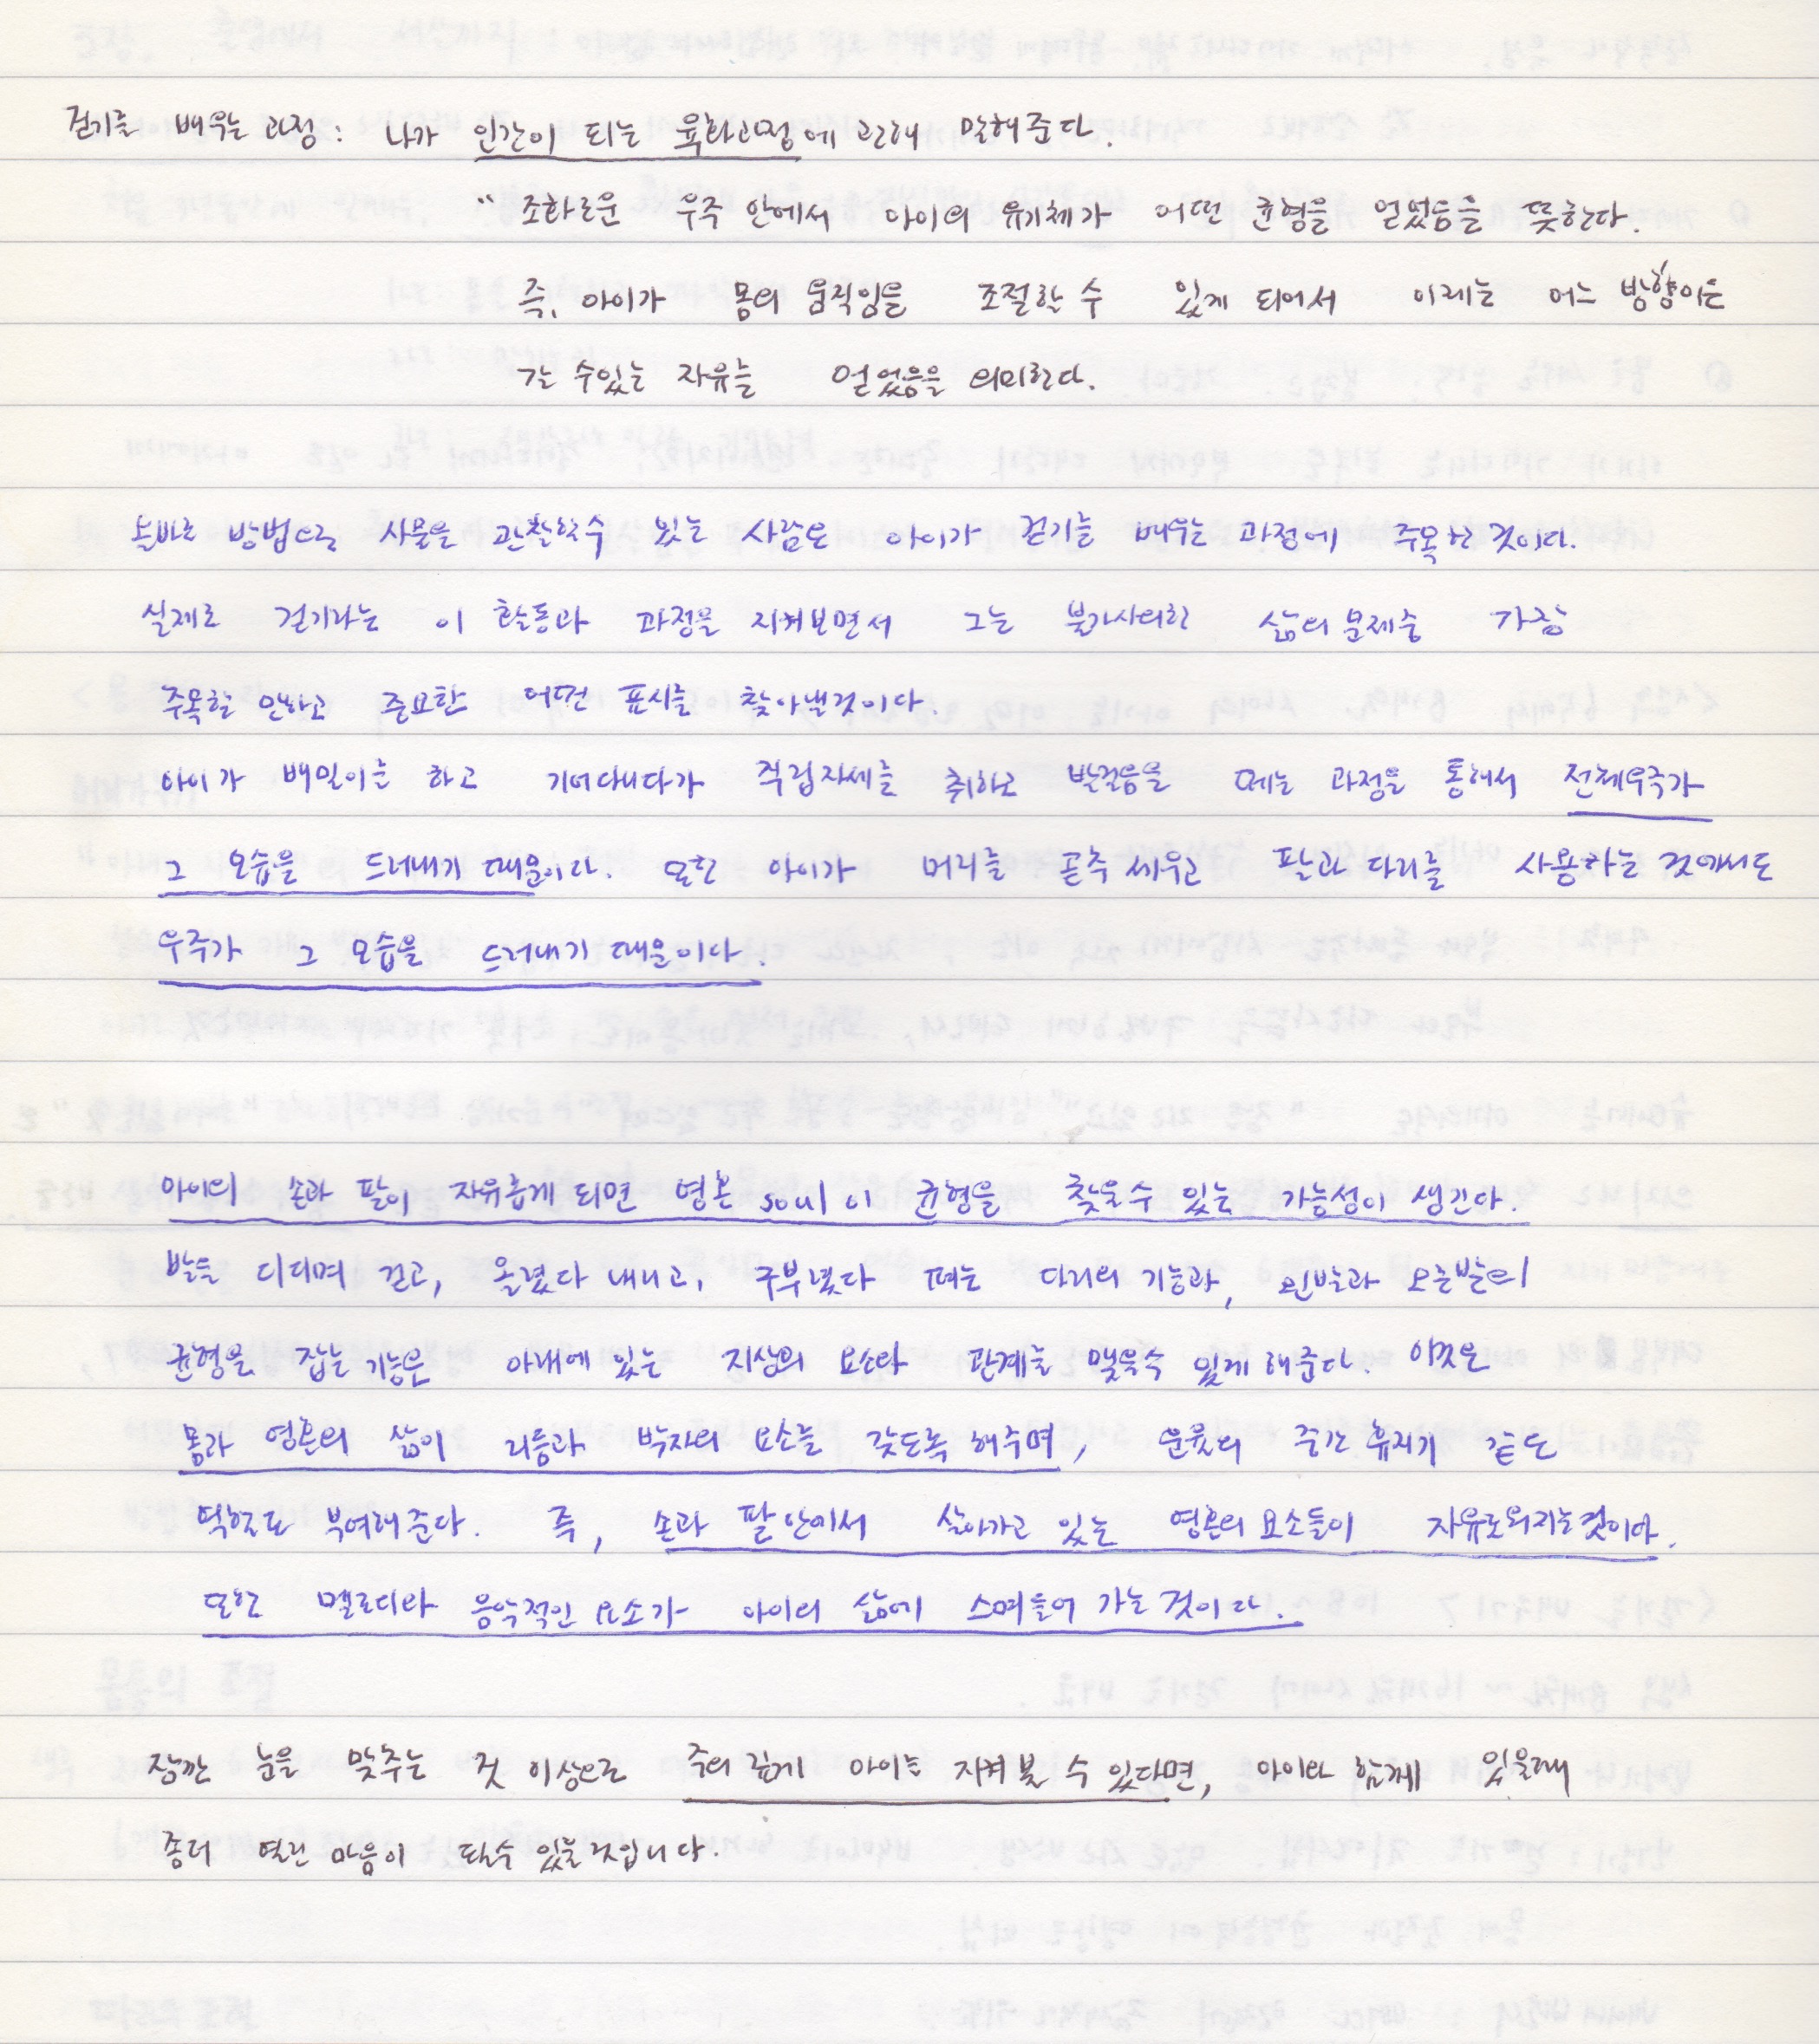 걷기를 배우는 과정: 나가 인간이 되는 육화과정에 관해 말해준다.
"조화로운 우주 안에서 아이의 유기체가 어떤 균형을 얻었음을 뜻한다.
즉, 아이가 몸의 움직임을 조절할 수 있게 되어서 이제는 어느 방향이든
갈 수있는 자유를 얻었음을 의미한다.
올바로 방법으로 사물을 관찰할수 있는 사람은 아이가 걷기를 배우는 과정에 주목할 것이다.
실제로 걷기라는 이 활동과 과정을 지켜보면서 그는 불가사의한 삶의 문제중 가장
주목할 만하고 중요한 어떤 표시를 찾아낼것이다.
아이가 배밀이를 하고 기어다니다가 직립자세를 취하고 발걸음을 떼는 과정을 통해서 전체우주가
그 모습을 드러내기 때문이다. 또한 아이가 머리를 곧추 세우고 팔과 다리를 사용하는 것에서도
우주가 그 모습을 드러내기 때문이다.
아이의 손과 팔이 자유롭게 되면 영혼 soul이 균형을 찾을수 있는 가능성이 생긴다.
발을 디디며 걷고, 올렸다 내리고, 구부렸다 펴는 다리의 기능과, 왼발과 오른발의
균형을 잡는 기능은 아래에 있는 지상의 요소와 관계를 맺을수 있게 해준다. 이것은
몸과 영혼의 삶이 리듬과 박자의 요소를 갖도록 해주며, 운율의 중간 휴지기 같은
역할도 부여해준다. 즉, 손과 팔 안에서 살아가고 있는 영혼의 요소들이 자유로워지는것이다.
또한 멜로디와 음악적인 요소가 아이의 삶에 스며들어 가는 것이다.
잠깐 눈을 맞추는 것 이상으로 주의 깊게 아이를 지켜볼 수 있다면, 아이와 함께 있을때
좀더 열린 마음이 될수 있을것입니다.